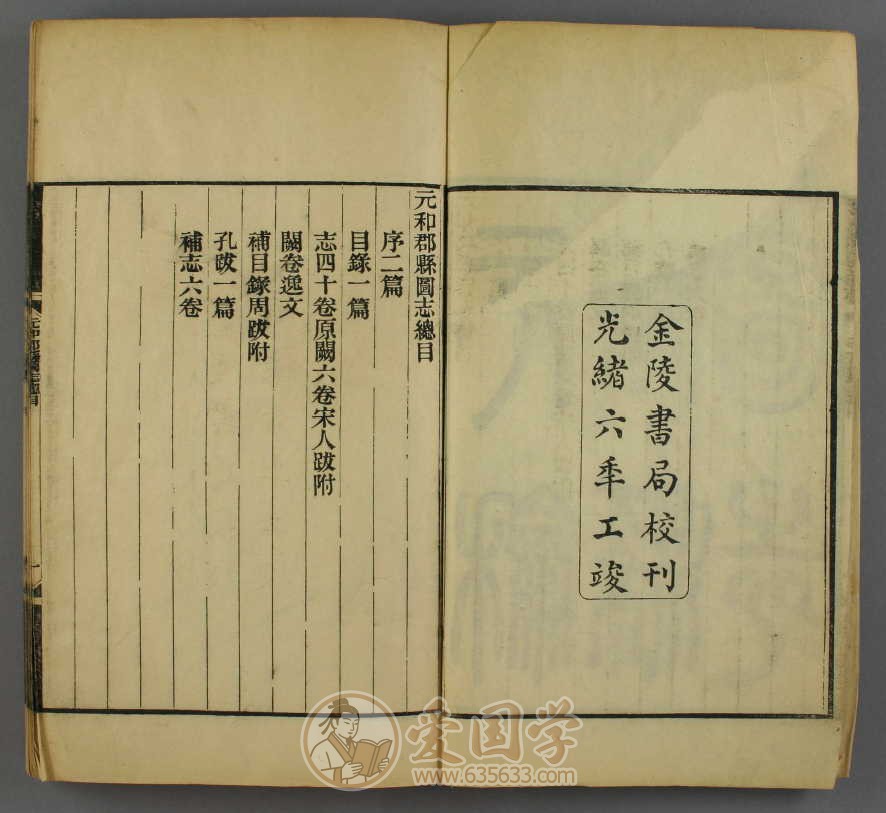 金陵書局校刊
光緒六秊工竣
元和郡縣圖志總目
序二篇
目錄一篇
志四十卷原闕六卷宋人跋附
闕卷逸文
補目錄周跋附
孔跋一篇
補志六卷
爱国学
www.635633.com